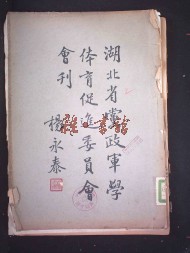 湖北省黨政軍學
体育促進委員會
會刊
楊永泰